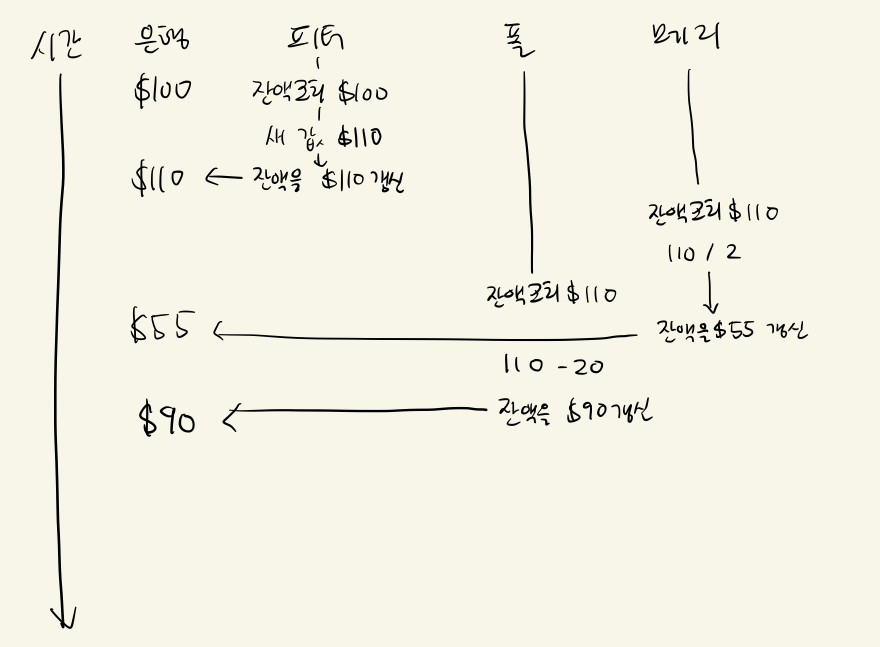 시간 은행 피터 폴 메리
$100 잔액조회 $100
새 값 $110
$110 잔액을 $110 갱신
잔액조회 $110
110 / 2
잔액조회 $110
$55 잔액을 $55 갱신
110 - 20
$90 잔액을 $90 갱신